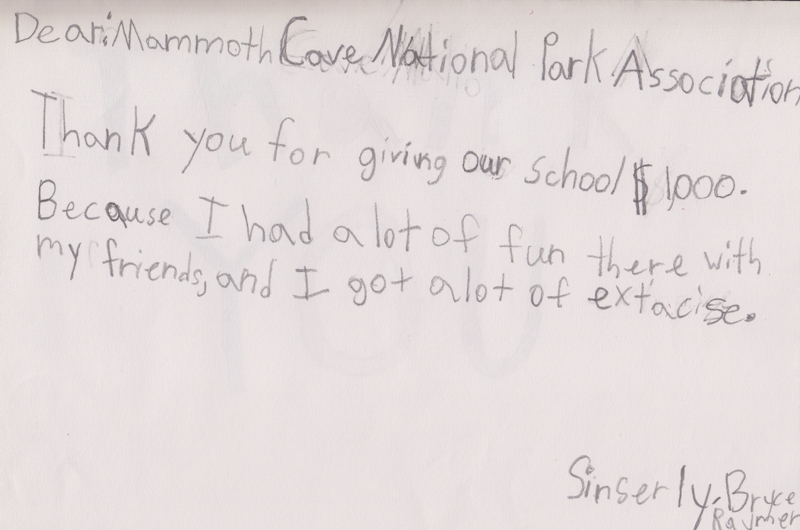 Dear: Mammoth Cave National Park Association
Thank you for giving our school $1,000.
Because I had alot of fun there with
my friends, and I got alot of extacise.
Sinserly, Bryce
Raymer